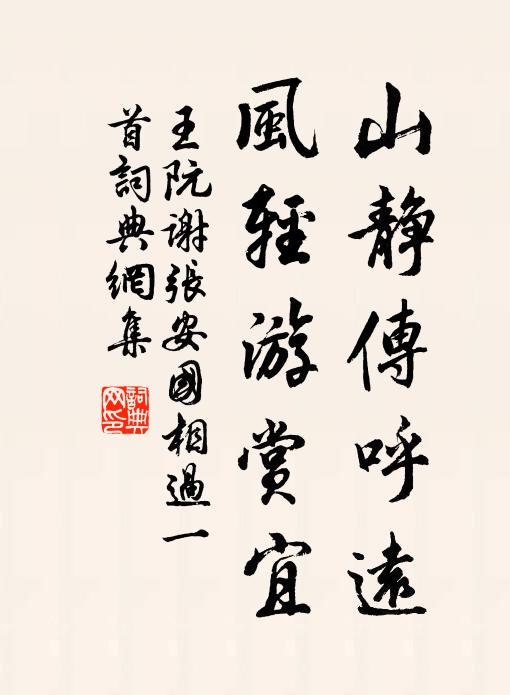 山靜傳呼遠
風輕游賞宜
王阮謝張安國相過一
首詞典網集
詞典
网印